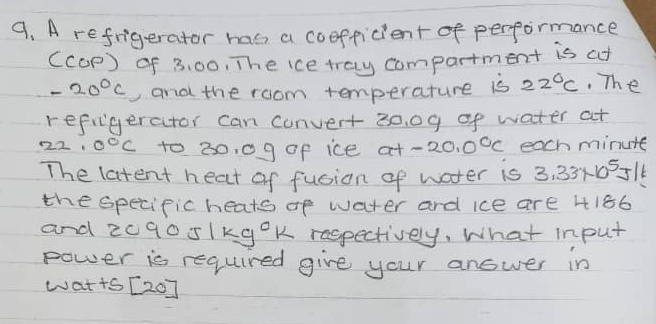 9. A refrigerator has a coefficient of performance
(COP) of 3.00. The ice tray compartment is at
-20°C, and the room temperature is 22°C. The
refrigerator can convert 30.0g of water at
22.0°C to 30.0g of ice at -20.0°C each minute
The latent heat of fusion of water is 3.33×10⁵J/k
the specific heats of water and ice are 4186
and 2090J/kg°K respectively. What input
power is required give your answer in
watts [20]